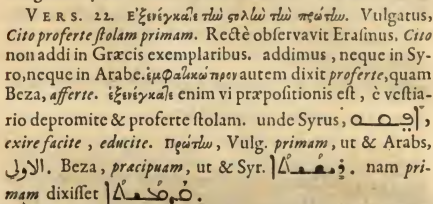 VERS. 22. Ἐξενέγκαϊε τὼ ςολὼ τὼ πρώτω. Vulgatus,
Cito proferte ſtolam primam. Rectè obſervavit Eraſmus, Cito
non addi in Græcis exemplaribus. addimus, neque in Sy-
ro, neque in Arabe. ἐμφαϊικώτερον autem dixit proferte, quam
Beza, afferte. ἐξενέγκαϊε enim vi præpoſitionis eſt, è veſtia-
rio depromite & proferte ſtolam. unde Syrus, ܐܦܩܘ,
exire facite, educite. Πρώτω, Vulg. primam, ut & Arabs,
الاولى. Beza, præcipuam, ut & Syr. nam pri-
mam dixiſſet ܩܕܡܝܬܐ.